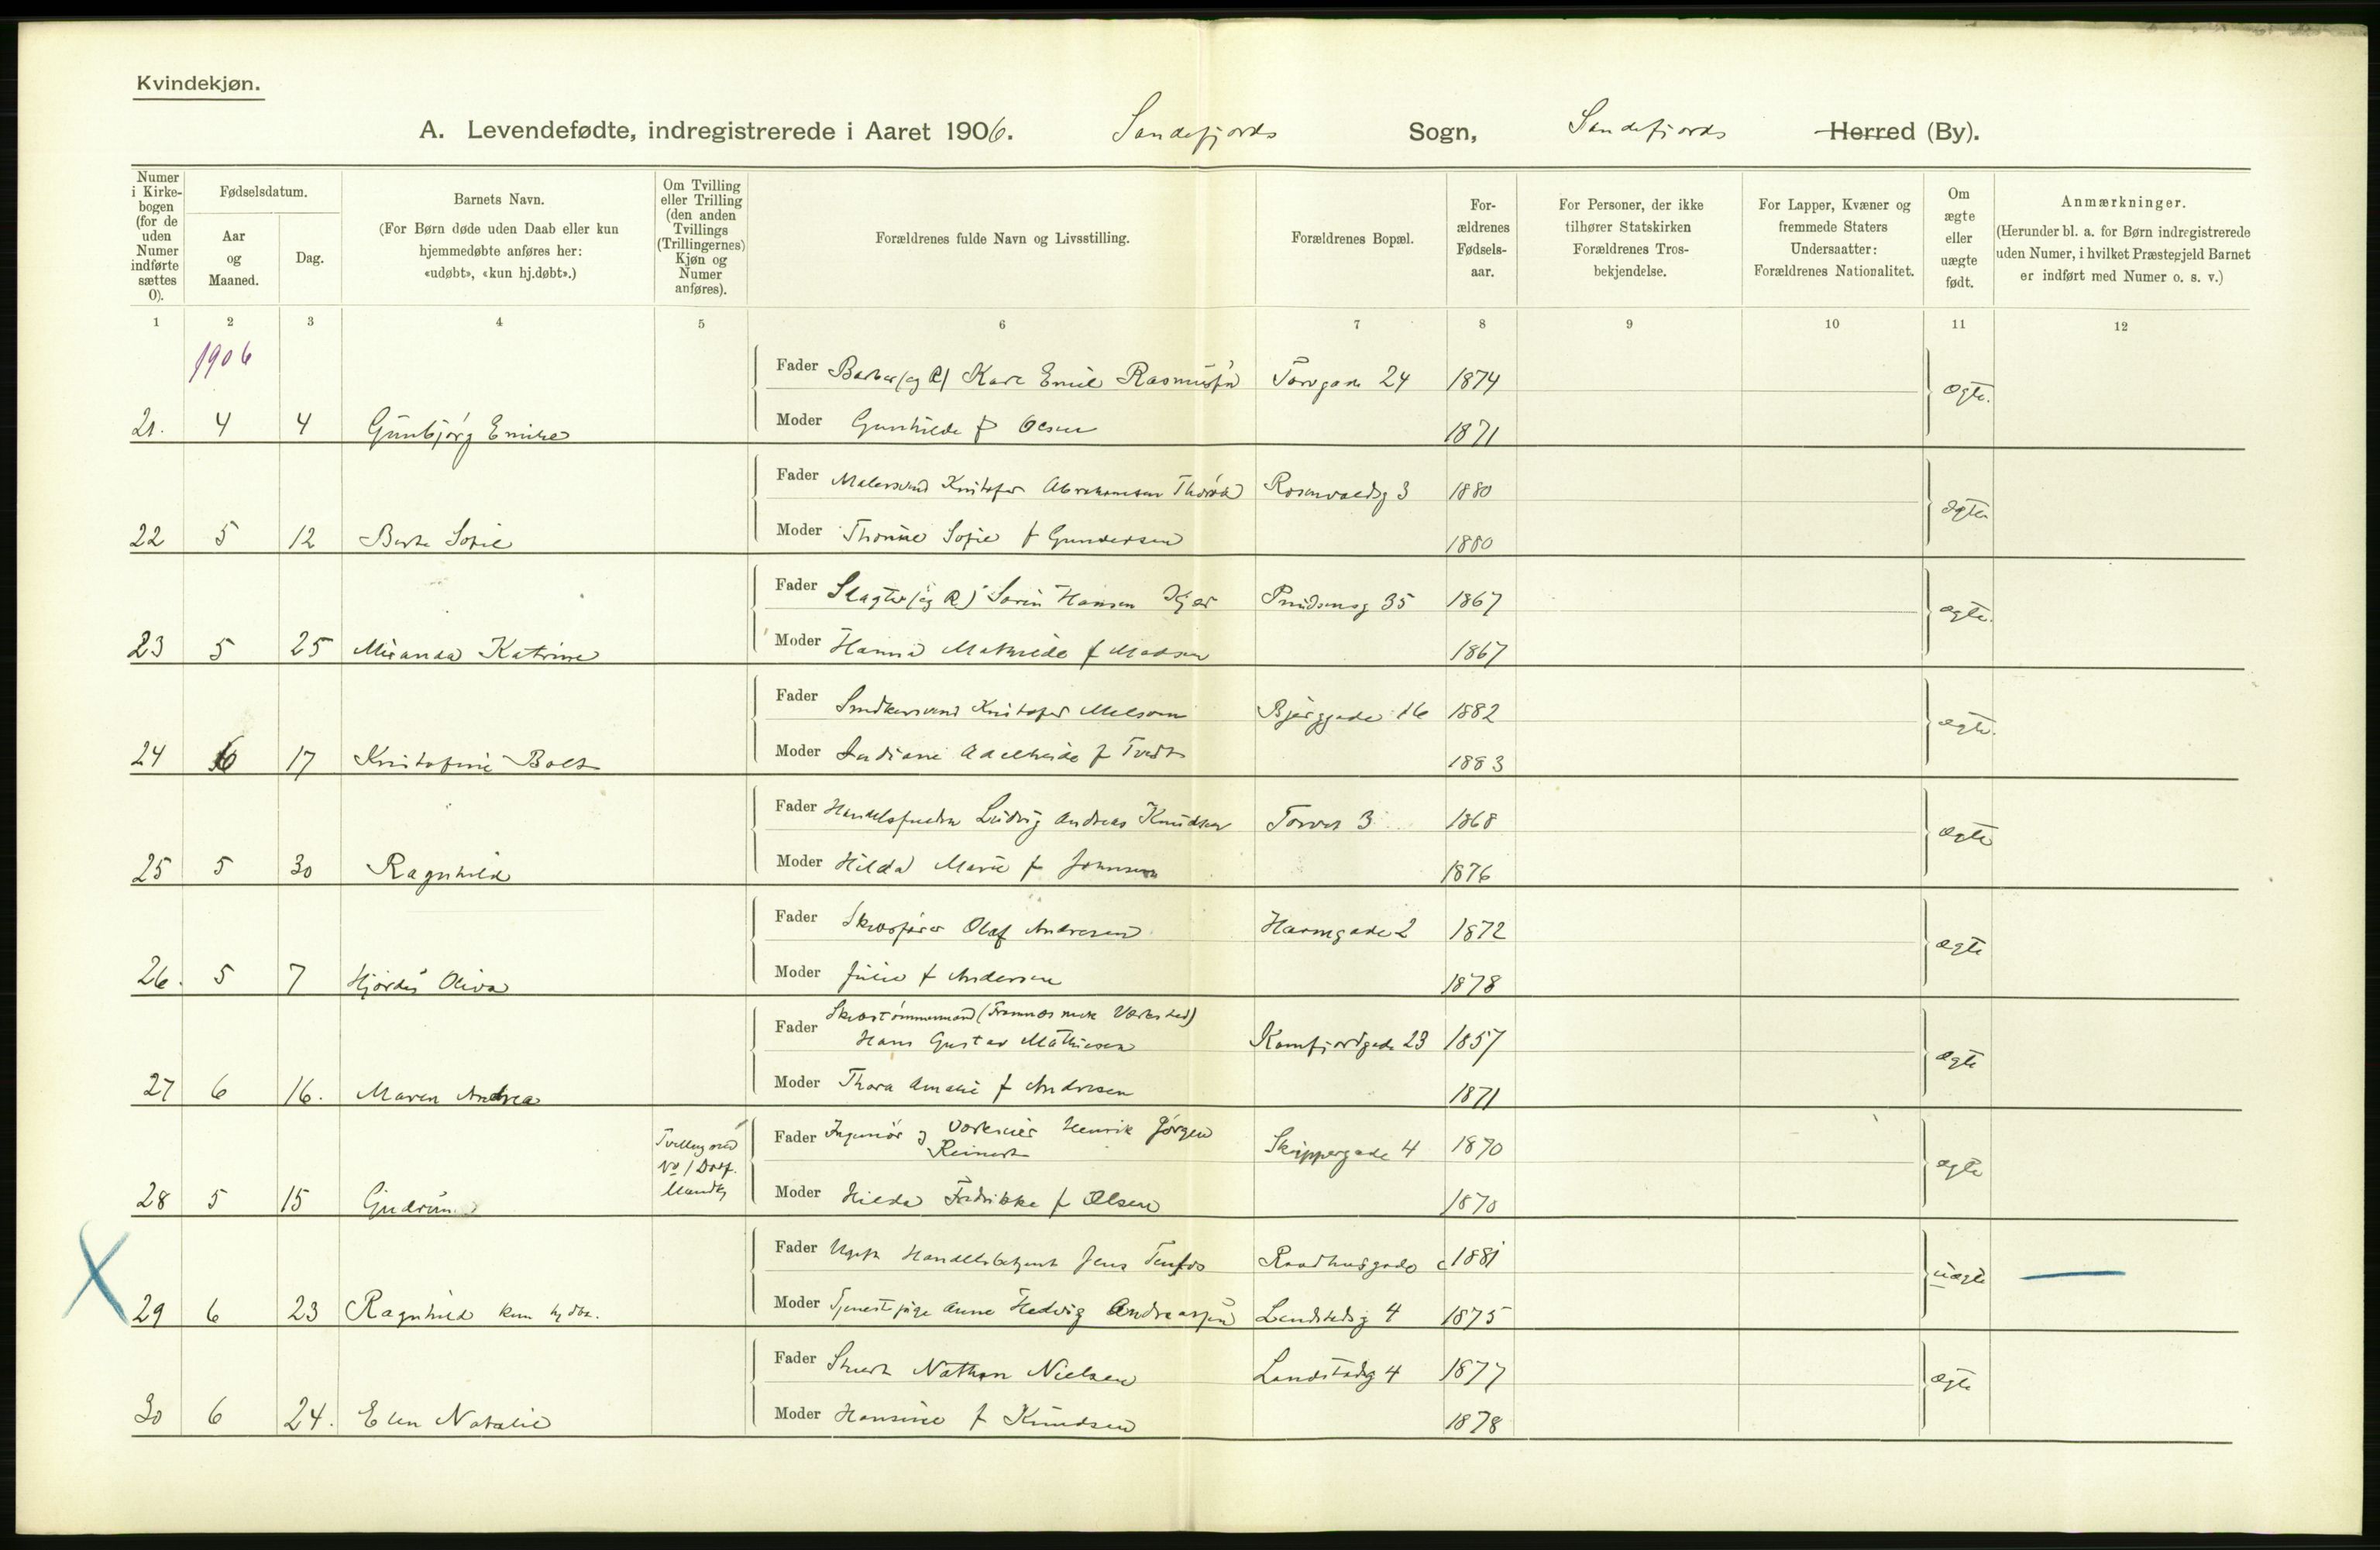 Kvindekjøn.
A. Levendefødte, indregistrerede i Aaret 1906. Sandefjords Sogn, Sandefjords Herred (By).
Numer i Kirkebogen (for de uden Numer indførte sættes 0).
Fødselsdatum.
Aar og Maaned.
Dag.
Barnets Navn.
(For Børn døde uden Daab eller kun hjemmedøbte anføres her: «udøbt», «kun hj.døbt».)
Om Tvilling eller Trilling (den anden Tvillings (Trillingernes) Kjøn og Numer anføres).
Forældrenes fulde Navn og Livsstilling.
Forældrenes Bopæl.
Forældrenes Fødselsaar.
For Personer, der ikke tilhører Statskirken Forældrenes Trosbekjendelse.
For Lapper, Kvæner og fremmede Staters Undersaatter: Forældrenes Nationalitet.
Om ægte eller uægte født.
Anmærkninger.
(Herunder bl. a. for Børn indregistrerede uden Numer, i hvilket Præstegjeld Barnet er indført med Numer o. s. v.)
1 2 3 4 5 6 7 8 9 10 11 12
1906
Fader Barber (eg R) Karl Emil Rasmussen Torvgade 24 1874 ægte.
21. 4 4 Gunbjørg Emilie Moder Gunhilde f Olsen 1871
Fader Malersvend Kristofer Abrahamsen Rosenvoldsg 3 1880 ægte
22 5 12 Berte Sofie Moder Thorine Sofie f Gundersen 1880
Fader Slagter (eg R) Søren Hansen 35 1867 ægte.
23 5 25 Miranda Katrine Moder Hanna Mathilde f Madsen 1867
Fader Kristofer Melsom Bjerggade 16 1882 ægte.
24 6 17 Kristofine Moder Adelheide f Tvedt 1883
Fader Ludvig Andreas Knudsen Torvet 3 1868 ægte
25 5 30 Ragnhild Moder Hilda Marie f Johnsen 1876
Fader Skibsfører Olaf Andresen Havnegade 2 1872 ægte
26. 5 7 Hjørdis Oliva Moder Julie f Andersen 1878
Skibstømmermand (Framnæs mek Værksted)
Fader Hans Gustav Mathiesen Kamfjordgade 23 1857 ægte
27 6 16. Maren Andrea Moder Thora Amalie f Andresen 1871
Tvilling med No 1 Mandkj
Fader Ingeniør og Værkseier Henrik Jørgen Reinert Skippergade 4 1870 ægte
28 5 15 Gudrun Moder Hilda Fredrikke f Olsen 1870
Fader Ugift Handelsbetjent Jens Raadhusgade 1881 uægte
29 6 23 Ragnhild kun hj dbt. Moder Tjenestepige Anna Hedvig Andreassen Landstadsg 4 1875
Fader Stuert Nathan Nielsen Landstadsg 4 1877 ægte
30 6 24. Elen Natalie Moder Hansine f Knudsen 1878